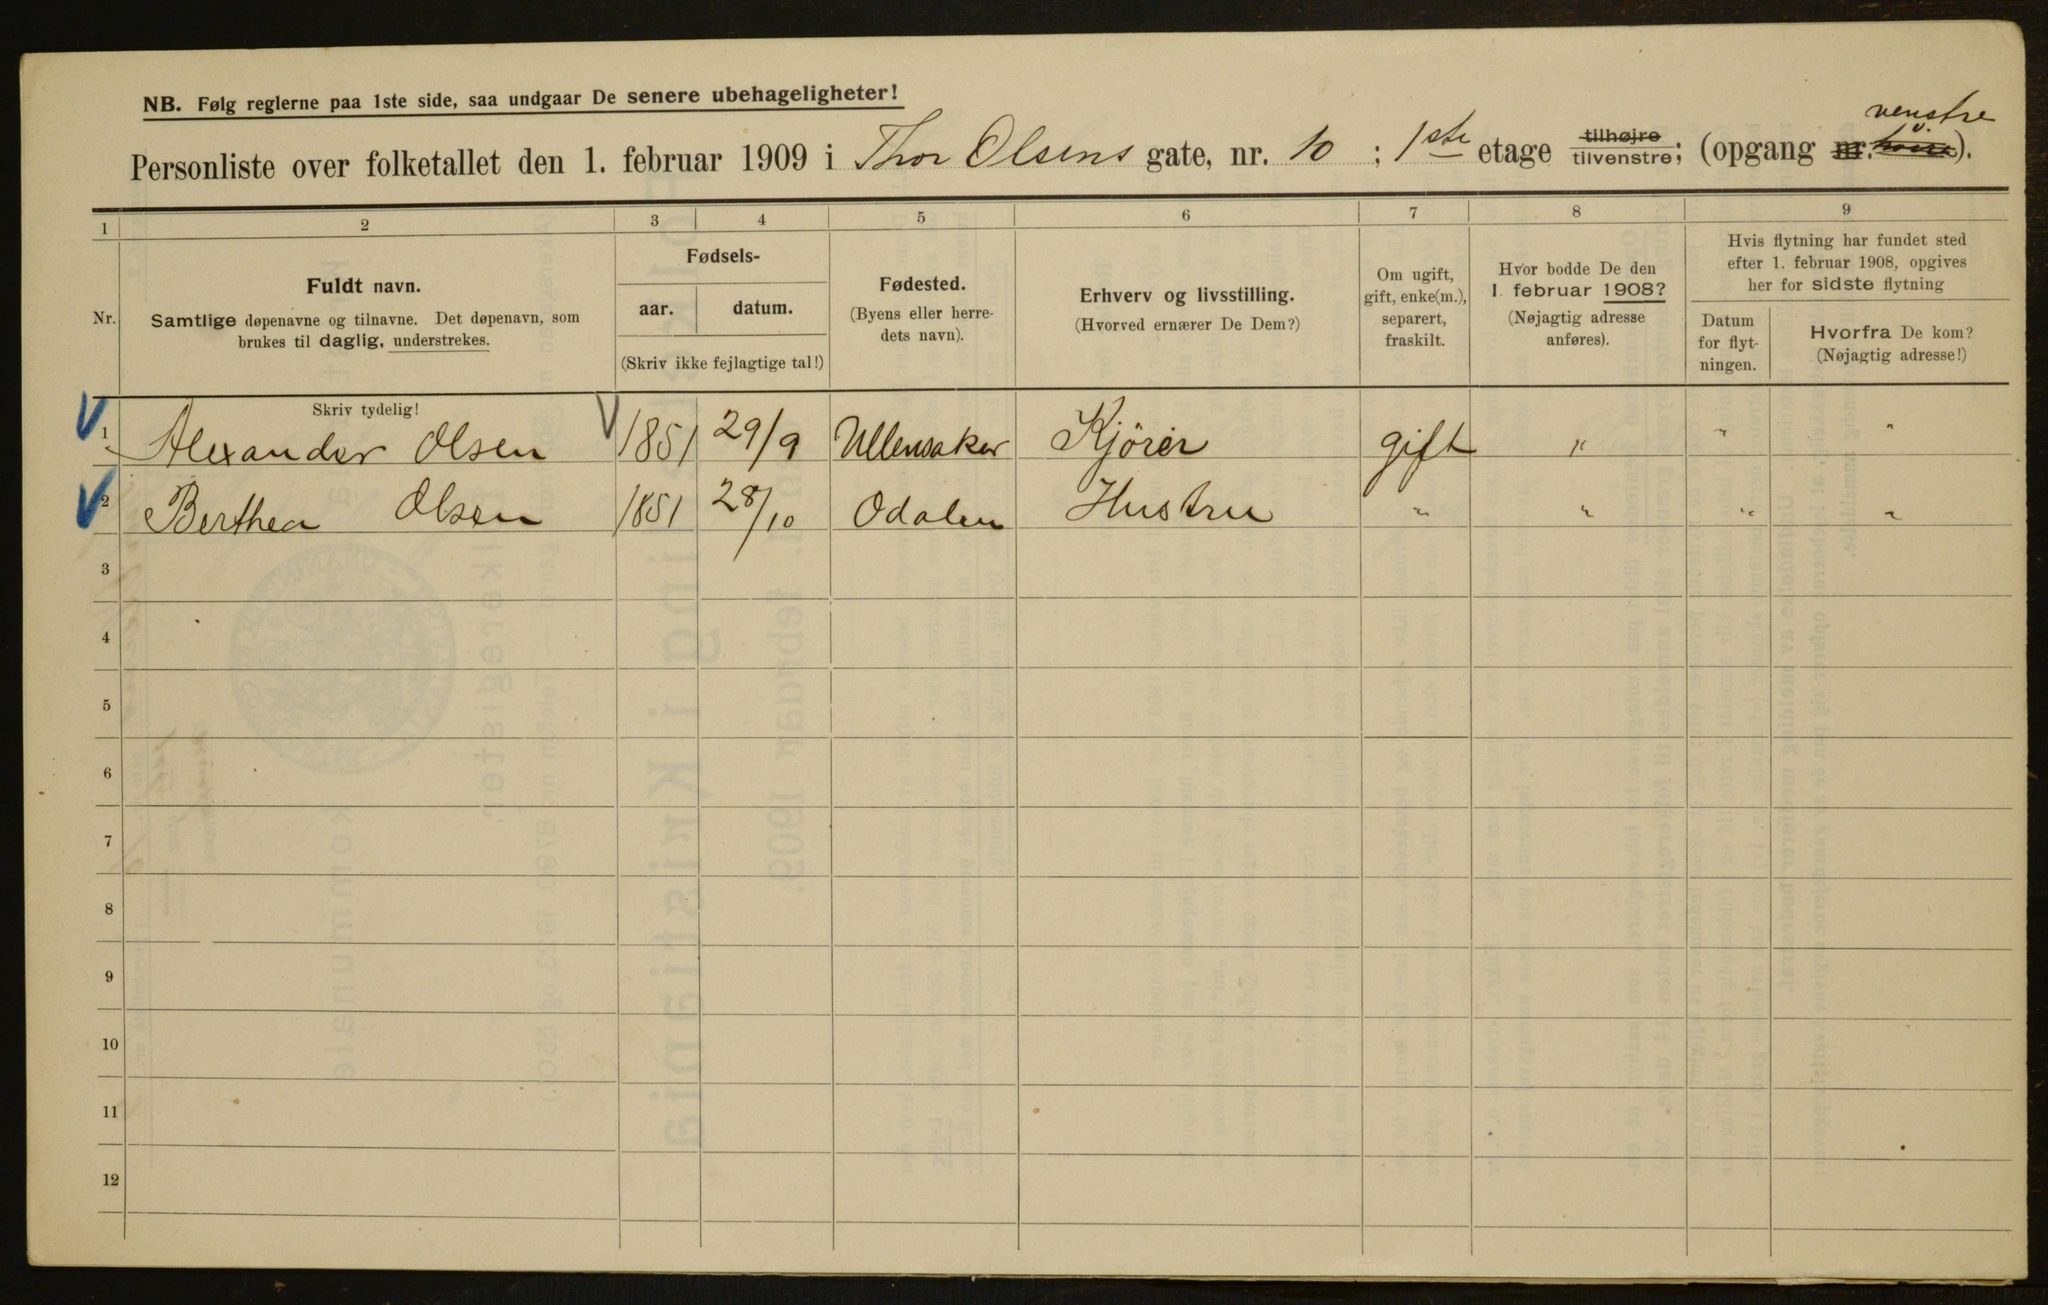 NB. Følg reglerne paa 1ste side, saa undgaar De senere ubehageligheter!
venstre
Personliste over folketallet den 1. februar 1909 i Thor Olsens gate, nr. 10 ; 1ste etage tilhøjre tilvenstre; (opgang nr. høire v.).
1 2 3 4 5 6 7 8 9
Nr.
Fuldt navn.
Samtlige døpenavne og tilnavne. Det døpenavn, som
brukes til daglig, understrekes.
Fødsels-
aar. datum.
(Skriv ikke fejlagtige tal!)
Fødested.
(Byens eller herre-
dets navn).
Erhverv og livsstilling.
(Hvorved ernærer De Dem?)
Om ugift,
gift, enke(m.),
separert,
fraskilt.
Hvor bodde De den
1. februar 1908?
(Nøjagtig adresse
anføres).
Hvis flytning har fundet sted
efter 1. februar 1908, opgives
her for sidste flytning
Datum
for flyt-
ningen.
Hvorfra De kom?
(Nøjagtig adresse!)
Skriv tydelig!
1 Alexander Olsen 1851 29/9 Ullensaker Kjörer gift " " "
2 Berthea Olsen 1851 28/10 Odalen Hustru " " " "
3
4
5
6
7
8
9
10
11
12